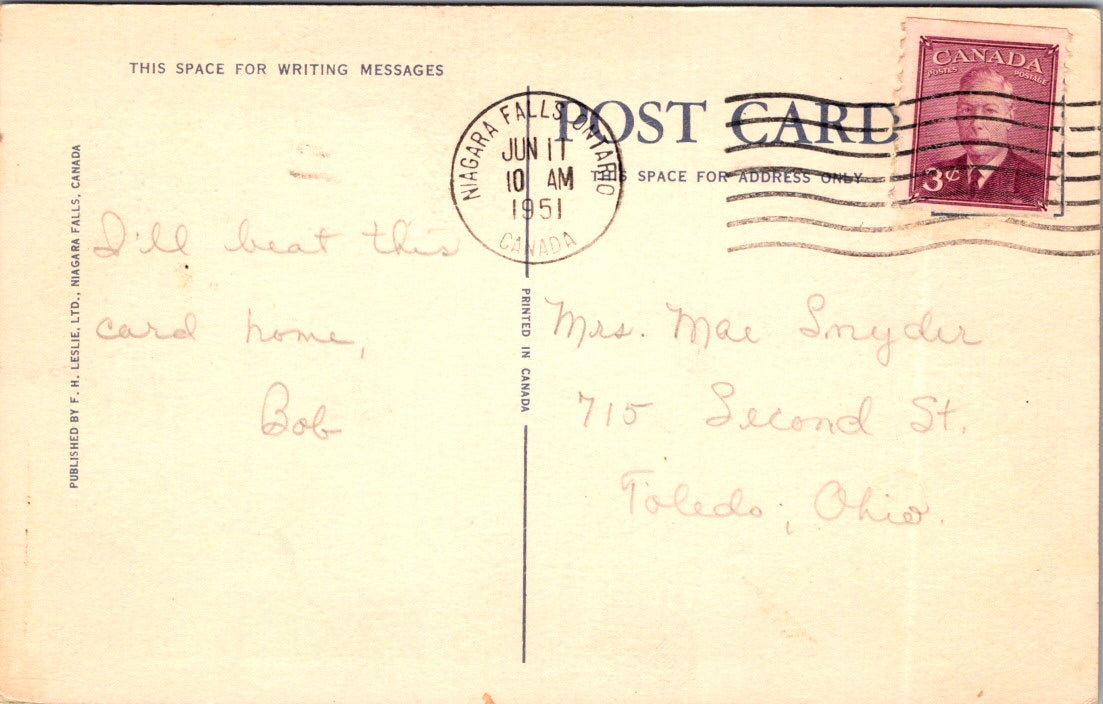 THIS SPACE FOR WRITING MESSAGES
POST CARD
THIS SPACE FOR ADDRESS ONLY
CANADA
POSTES POSTAGE
3¢
NIAGARA FALLS ONTARIO
JUN 11
10 AM
1951
CANADA
PUBLISHED BY F. H. LESLIE, LTD., NIAGARA FALLS, CANADA
PRINTED IN CANADA
I'll beat this
card home,
Bob
Mrs. Mae Snyder
715 Second St.
Toledo, Ohio.